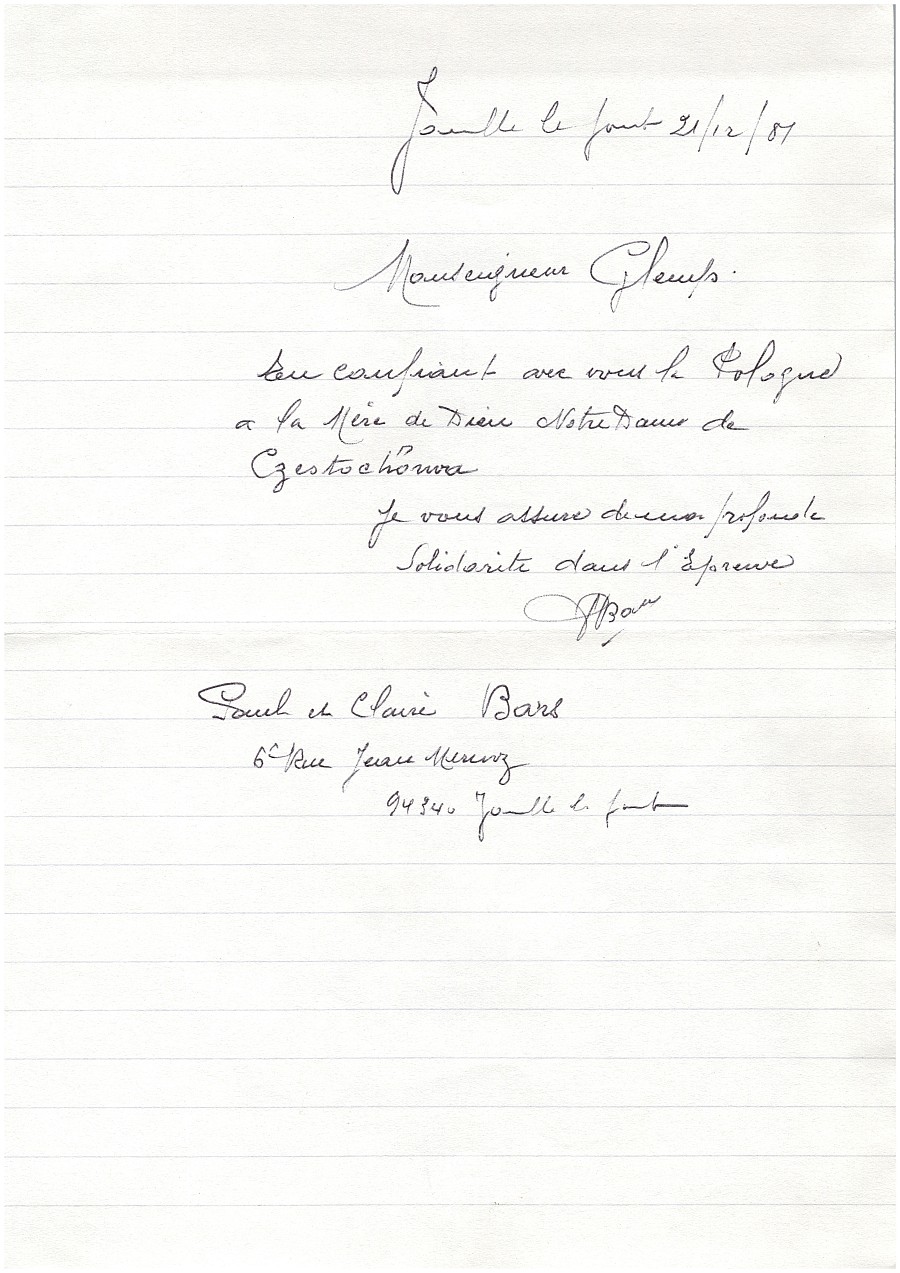 Joinville le pont 21/12/81
Monseigneur Glemp.
En confiant avec vous la Pologne
a la Mère de Dieu Notre Dame de
Czestochowa
Je vous assure de ma profonde
Solidarite dans l'Epreuve
PBars
Paul et Claire Bars
6 Rue Jean Mermoz
94340 Joinville le pont